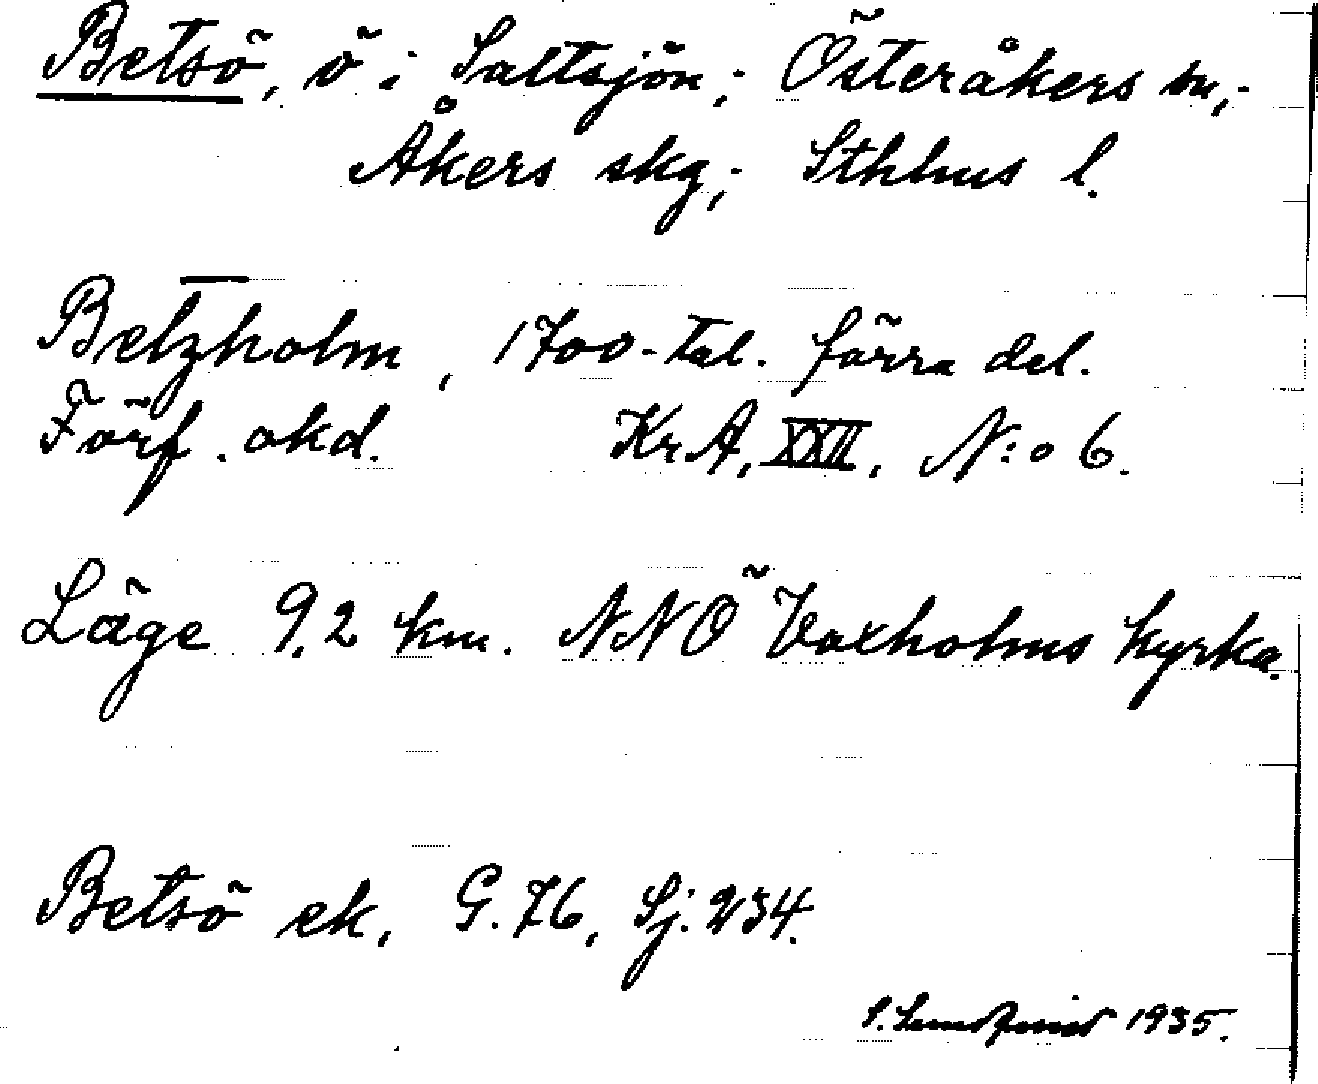 Betsö, ö i Saltsjön; Österåkers sn,
Åkers skg; Sthlms l.
Betzholm, 1700-tal. förra del.
Förf. okd. Kr.A, XXII, N:o 6.
Läge 9,2 km. NNÖ Vaxholms kyrka.
Betsö ek, G.76, Sj. 234.
S. Lundqvist 1935.